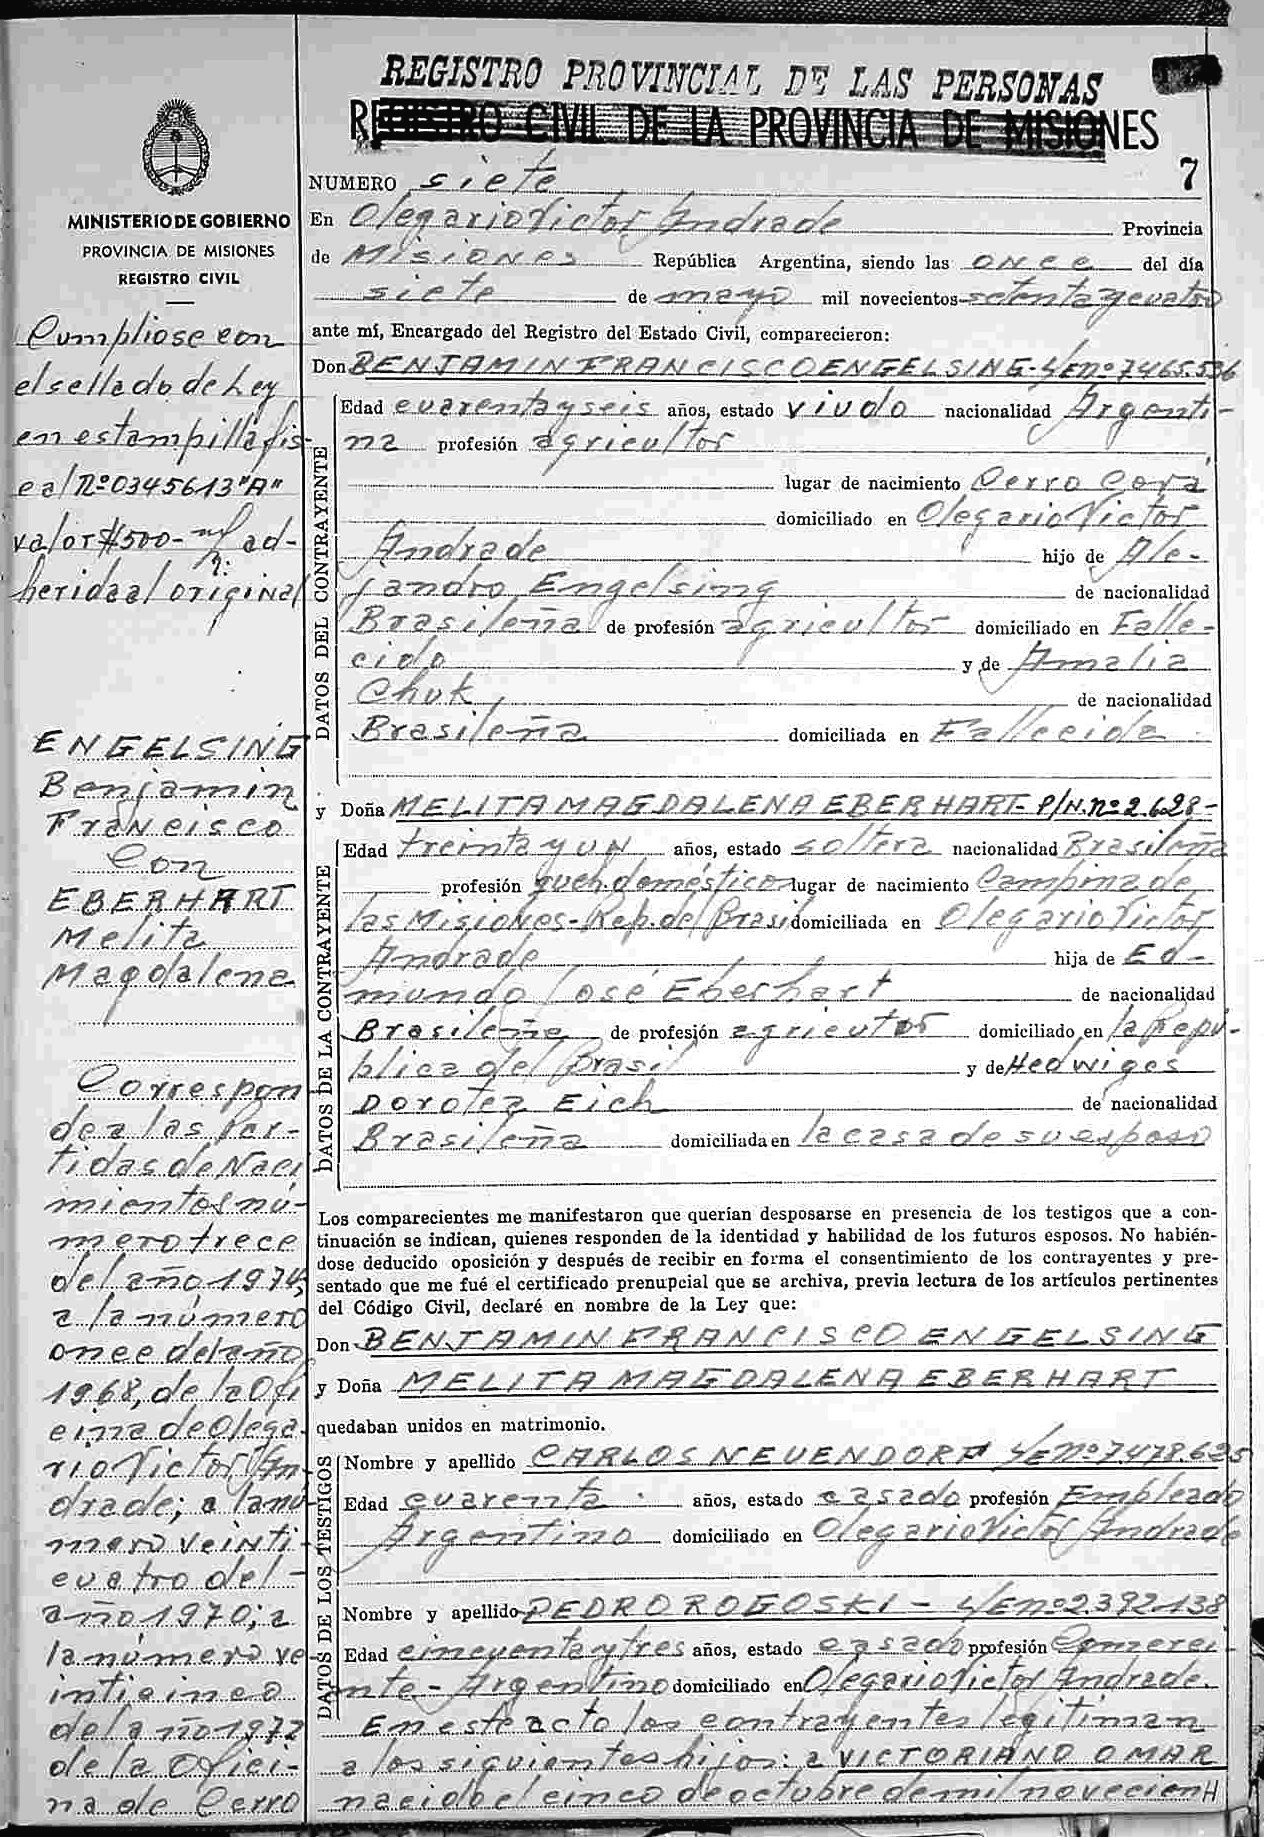 REGISTRO PROVINCIAL DE LAS PERSONAS
REGISTRO CIVIL DE LA PROVINCIA DE MISIONES
7
MINISTERIO DE GOBIERNO
PROVINCIA DE MISIONES
REGISTRO CIVIL
Cumpliose con
el sellado de Ley
en estampilla fis-
cal Nº 0345613 "A"
valor $500- ad-
herida al original
ENGELSING
Benjamin
Francisco
Con
EBERHART
Melita
Magdalena
Correspon
de a las Par-
tidas de Naci
mientos nú-
mero trece
del año 1974;
a la número
once del año
1968, de la Ofi
cina de Olega-
rio Victor An-
drade; a la nú
mero veinti-
cuatro del
año 1970; a
la número ve
inticinco
del año 1972
de la Ofici-
na de Cerro
NUMERO siete
En Olegario Victor Andrade Provincia
de Misiones República Argentina, siendo las once del día
siete de mayo mil novecientos setenta y cuatro
ante mí, Encargado del Registro del Estado Civil, comparecieron:
Don BENJAMIN FRANCISCO ENGELSING- L/E nº 7.465.536
DATOS DEL CONTRAYENTE
Edad cuarenta y seis años, estado viudo nacionalidad Argenti-
na profesión agricultor
lugar de nacimiento Cerro Corá
domiciliado en Olegario Victor
Andrade hijo de Ale-
jandro Engelsing de nacionalidad
Brasileña de profesión agricultor domiciliado en Falle-
cido y de Amalia
Chuk de nacionalidad
Brasileña domiciliada en Fallecida
y Doña MELITA MAGDALENA EBERHART- P/N. nº 2.628-
DATOS DE LA CONTRAYENTE
Edad treinta y un años, estado soltera nacionalidad Brasileña
profesión queh. doméstico lugar de nacimiento Campina de
las Misiones- Rep. del Brasil domiciliada en Olegario Victor
Andrade hija de Ed-
mundo José Eberhart de nacionalidad
Brasileña de profesión agricutor domiciliado en la Repú-
blica del Brasil y de Hedwiges
Dorotea Eich de nacionalidad
Brasileña domiciliada en la casa de su esposo
Los comparecientes me manifestaron que querían desposarse en presencia de los testigos que a con-
tinuación se indican, quienes responden de la identidad y habilidad de los futuros esposos. No habién-
dose deducido oposición y después de recibir en forma el consentimiento de los contrayentes y pre-
sentado que me fué el certificado prenupcial que se archiva, previa lectura de los artículos pertinentes
del Código Civil, declaré en nombre de la Ley que:
Don BENJAMIN FRANCISCO ENGELSING
y Doña MELITA MAGDALENA EBERHART
quedaban unidos en matrimonio.
DATOS DE LOS TESTIGOS
Nombre y apellido CARLOS NEUENDORF L/E nº 7.478.625
Edad cuarenta años, estado casado profesión Empleado
Argentino domiciliado en Olegario Victor Andrade
Nombre y apellido PEDRO ROGOSKI - L/E nº 2.392.138
Edad cincuenta y tres años, estado casado profesión Comercia
nte- Argentino domiciliado en Olegario Victor Andrade.
En este acto los contrayentes legitiman
a los siguientes hijos: a VICTORIANO OMAR
nacido el cinco de octubre de mil novecient